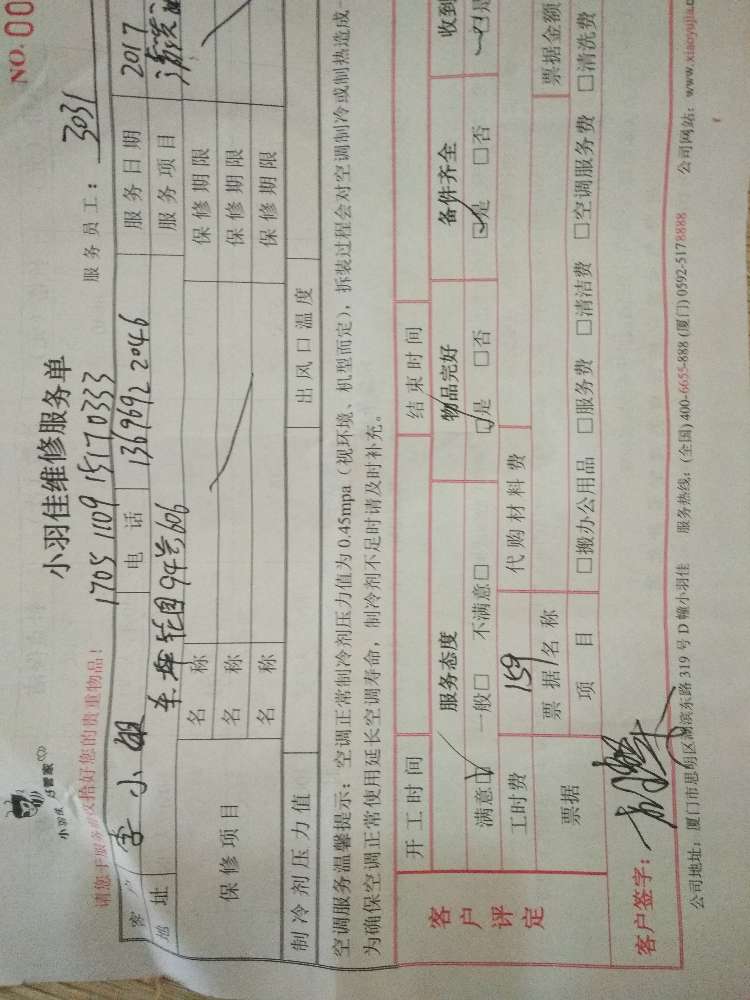 NO.00
小羽佳 好管家
小羽佳维修服务单
1705 1109 15170333
请您于服务前收拾好您的贵重物品!
服务员工: 3031
客户 李小
电话 1369692 2046
服务日期 2017
地址 94号606
服务项目
保修项目
名称
保修期限
名称
保修期限
名称
保修期限
制冷剂压力值
出风口温度
空调服务温馨提示:空调正常制冷剂压力值为0.45mpa(视环境、机型而定),拆装过程会对空调制冷或制热造成
为确保空调正常使用延长空调寿命,制冷剂不足时请及时补充。
客户评定
开工时间
结束时间
服务态度
物品完好
备件齐全
收到
满意☑ 一般□ 不满意□
☑是 □否
☑是 □否
是
工时费 159
代购材料费
票据
票据名称
票据金额
项目
□搬办公用品 □服务费 □清洁费 □空调服务费 □清洗费
客户签字:
公司地址:厦门市思明区湖滨东路319号D幢小羽佳 服务热线:(全国)400-6655-888(厦门)0592-5178888 公司网站:www.xiaoyujia.c